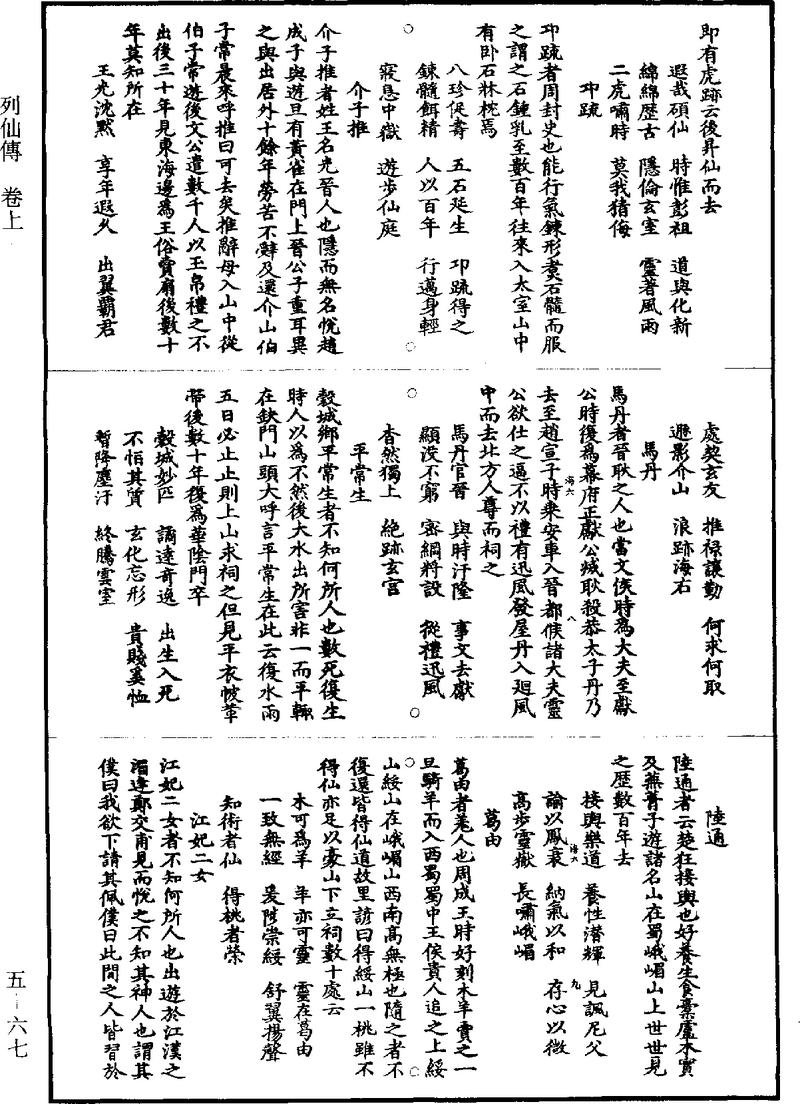 即有虎跡云後昇仙而去
遐哉碩仙　時惟彭祖　道與化新
綿綿歷古　隱倫玄室　靈著風雨
二虎嘯時　莫我猜侮
卭疏
卭疏者周封史也能行氣鍊形煑石髓而服
之謂之石鍾乳至數百年往來入太室山中
有卧石牀枕焉
八珍促壽　五石延生　卭疏得之
鍊髓餌精　人以百年　行邁身輕
寢息中嶽　遊步仙庭
介子推
介子推者姓王名光晉人也隱而無名悅趙
成子與遊旦有黃雀在門上晉公子重耳異
之與出居外十餘年勞苦不辭及還介山伯
子常晨來呼推曰可去矣推辭母入山中從
伯子常遊後文公遣數千人以玉帛禮之不
出後三十年見東海邊為王俗賣扇後數十
年莫知所在
王光沈默　享年遐久　出翼霸君
處契玄友　推祿讓勤　何求何取
遯影介山　浪跡海右
馬丹
馬丹者晉耿之人也當文侯時為大夫至獻
公時復為幕府正獻公滅耿殺恭太子丹乃
去至趙宣子時乘安車入晉都候諸大夫靈
公欲仕之逼不以禮有迅風發屋丹入迴風
中而去北方人尊而祠之
馬丹官晉　與時汙隆　事文去獻
顯沒不窮　密網將設　從禮迅風
杳然獨上　絕跡玄宮
平常生
穀城鄉平常生者不知何所人也數死復生
時人以為不然後大水出所害非一而平輒
在缺門山頭大呼言平常生在此云復水雨
五日必止止則上山求祠之但見平衣帔革
帶後數十年復為華陰門卒
穀城妙匹　譎達奇逸　出生入死
不恒其質　玄化忘形　貴賤奚恤
暫降塵汙　終騰雲室
陸通
陸通者云楚狂接輿也好養生食橐盧木實
及蕪菁子遊諸名山在蜀峨嵋山上世世見
之歷數百年去
接輿樂道　養性潛輝　見諷尼父
諭以鳳衰　納氣以和　存心以微
高步靈嶽　長嘯峨嵋
葛由
葛由者羗人也周成王時好刻木羊賣之一
旦騎羊而入西蜀蜀中王侯貴人追之上綏
山綏山在峨嵋山西南高無極也隨之者不
復還皆得仙道故里諺曰得綏山一桃雖不
得仙亦足以豪山下立祠數十處云
木可為羊　羊亦可靈　靈在葛由
一致無經　爰陟崇綏　舒翼揚聲
知術者仙　得桃者榮
江妃二女
江妃二女者不知何所人也出遊於江漢之
湄逢鄭交甫見而悅之不知其神人也謂其
僕曰我欲下請其佩僕曰此間之人皆習於
列仙傳　卷上
五－六七
海六
八
海六
九